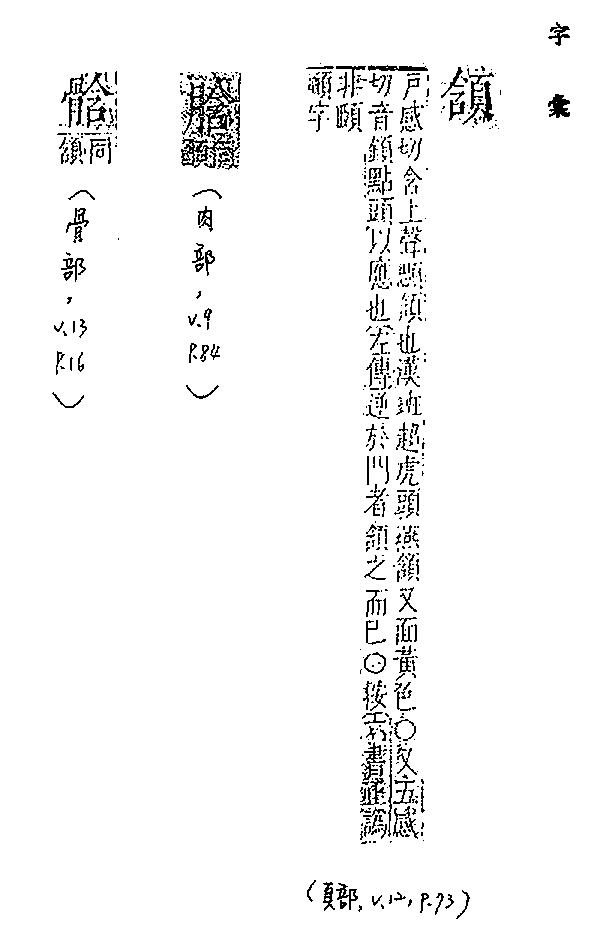 字彙
頷
戶感切含上聲顋頷也漢班超虎頭燕頷又面黃色○又五感
切音顉點頭以應也左傳逆於門者頷之而已○按書譌
非頤
字
(肉部, v.9 P.84)
同
頷
(骨部, v.13 P.16)
(頁部, v.12, P.73)